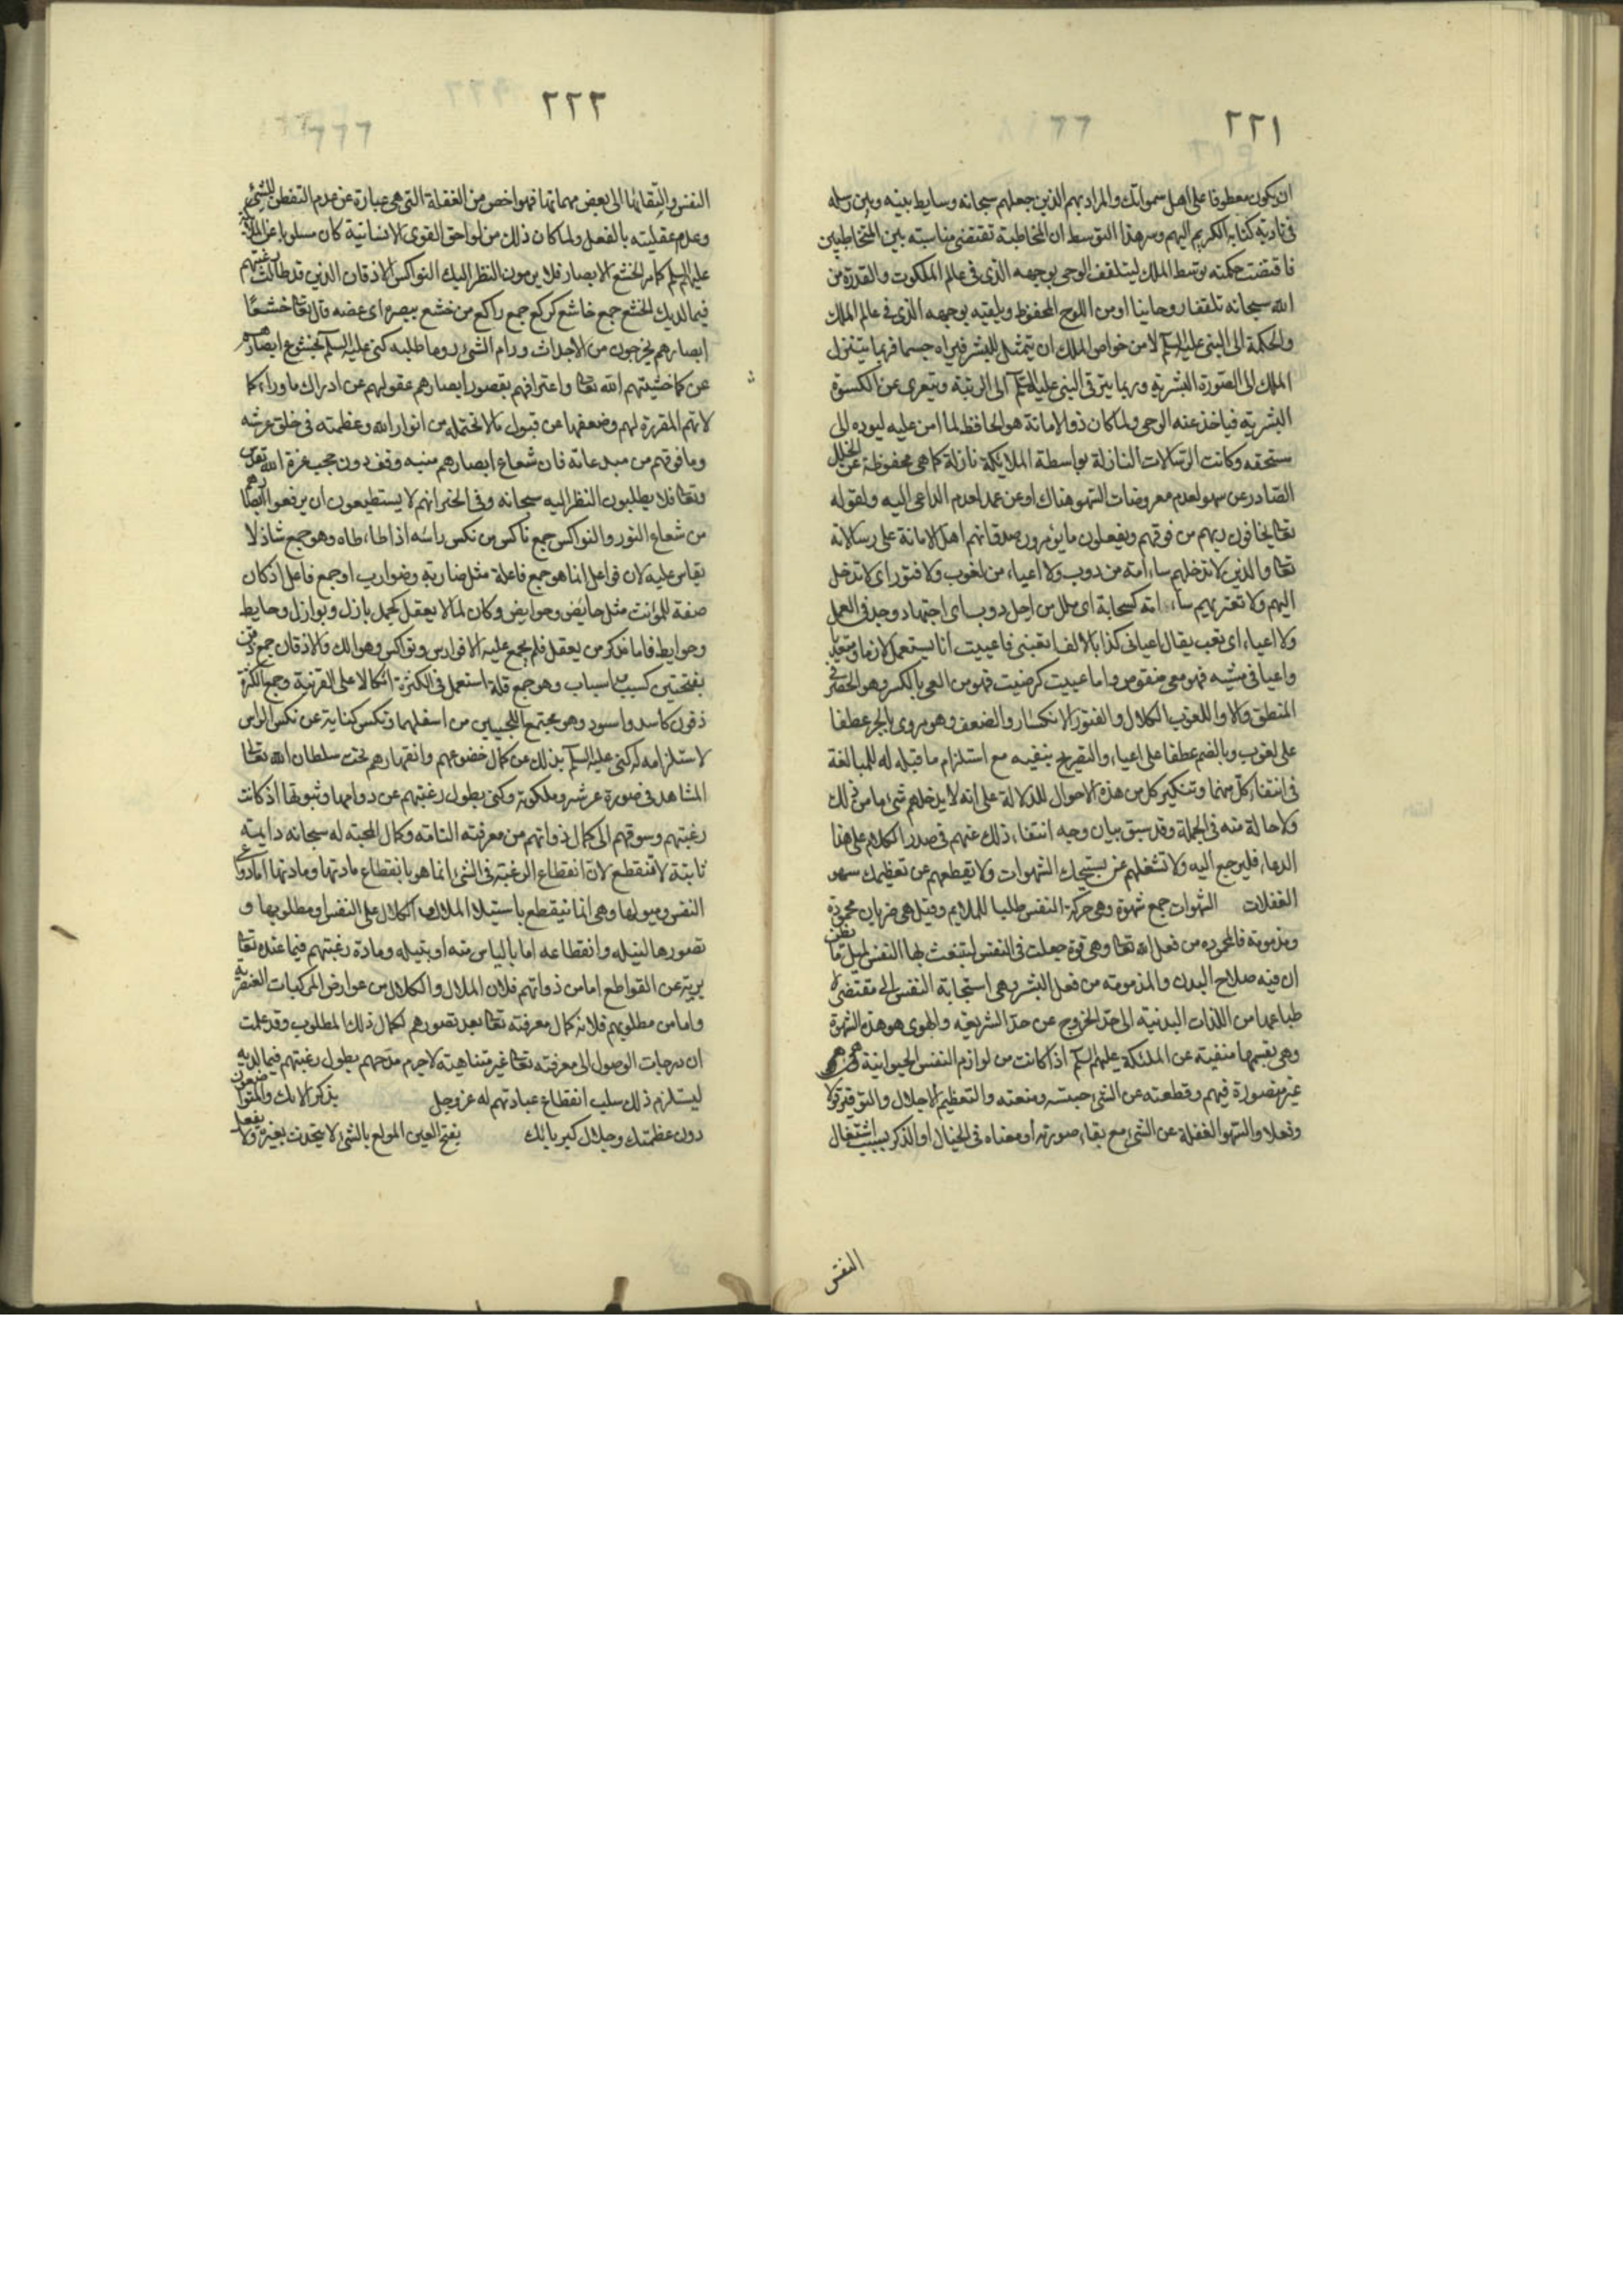 ٢٢١
ان يكون معطوفا على اهل سمواتك والمراد بهم الذين جعلهم سبحانه وسايط بينه وبين رسله
فى تادية كتابه الكريم اليهم وسر هذا التوسط ان المخاطبة تقتضى مناسبة بين المتخاطبين
فاقتضت حكمته توسط الملك ليتلقف الوحى بوجهه الذى فى عالم الملكوت والقدرة من
الله سبحانه تلقفا روحانيا او من اللوح المحفوظ ويلقيه بوجهه الذى فى عالم الملك
والحكمة الى النبى عليه السلام لان من خواص الملك ان يتمثل للبشر فيراه جسما فربما يتنزل
الملك الى الصورة البشرية وربما يترقى النبى عليه السلام الى الرتبة ويتعرى عن الكسوة
البشرية فياخذ عنه الوحى ولما كان ذو الامانة هو الحافظ لما امن عليه ليوده الى
مستحقه وكانت الرسالات النازلة بواسطة الملايكة نازلة كما هى محفوظة عن الخلل
الصادر عن سهو لعدم معروضات السهو هناك او عن عمد لعدم الداعى اليه ولقوله
تعالى يخافون ربهم من فوقهم ويفعلون ما يؤمرون صدق انهم اهل الامانة على رسالاته
تعالى والذين لا تدخلهم سأمة من دوب ولا اعياء من لغوب ولا فتور اى لا تدخل
اليهم ولا تعتريهم سأمة كسحابة اى ملل من اجل دوب اى اجتهاد وجد فى العمل
ولا اعياء اى تعب يقال اعيانى كذا بالالف اتعبنى فاعييت انا يستعمل لازما ومتعديا
واعيا فى مشيه فهو معى منقوص واما عييت كرضيت فهو من العى بالكسر وهو الحصر فى
المنطق والا واللغوب الكلال والفتور الانكسار والضعف وهو مروى بالجر عطفا
على لغوب وبالضم عطفا على اعياء والتصريح بنفيه مع استلزام ما قبله له للمبالغة
فى انتفاء كل منهما وتنكير كل من هذه الاحوال للدلالة على انه لا يدخلهم شئ ما من ذلك
ولا حالة منه فى الجملة وقد سبق بيان وجه انتفاء ذلك عنهم فى صدر الكلام على هذا
الدعاء فليرجع اليه ولا تشغلهم عن تسبيحك الشهوات ولا يقطعهم عن تعظيمك سهو
الغفلات الشهوات جمع شهوة وهى حركة النفس طلبا للملايم وقيل هى ضربان محمودة
ومذمومة فالمحمودة من فعل الله تعالى وهى قوة جعلت فى النفس لتنبعث بها النفس لميل ما يظن
ان فيه صلاح البدن والمذمومة من فعل البشر وهى استجابة النفس الى مقتضى
طباعها من اللذات البدنية الى حد الخروج عن حد الشريعة والهوى هو هذه الشهوة
وهى بقسميها منفية عن الملئكة عليهم السلام اذا كانت من لوازم النفس الحيوانية وهى
غير متصورة فيهم وقطعته عن الشئ حبسته ومنعته والتعظيم الاجلال والتوقير قولا
وفعلا والسهو الغفلة عن الشئ مع بقاء صورته او معناه فى الخيال او الذكر بسبب اشتغال
النفس
٢٢٢
النفس والتفاتها الى بعض مهماتها فهو اخص من الغفلة التى هى عبارة عن عدم التفطن للشئ
وعدم عقليته بالفعل ولما كان ذلك من لواحق القوى الانسانية كان مسلوبا عن الملائكة
عليهم السلام كما مر الخشع الابصار فلا يرومون النظر اليك النواكس الاذقان الذين قد طالت رغبتهم
فيما لديك الخشع جمع خاشع كركع جمع راكع من خشع ببصره اى غضه قال تعالى خشعا
ابصارهم يخرجون من الاجداث ورام الشئ روما طلبه كنى عليه السلام بخشوع ابصارهم
عن كمال خشيتهم الله تعالى واعترافهم بقصور ابصارهم عقولهم عن ادراك ما وراء كما
لاتهم المقررة لهم وضعفها عن قبول مالا تحتمله من انوار الله وعظمته فى خلق عرشه
وما فوقهم من مبدعاته فان شعاع ابصارهم منته وقف دون حجب عزة الله تقدس
وتعالى فلا يطلبون النظر اليه سبحانه وفى الخبر انهم لا يستطيعون ان يرفعوا ابصارهم
من شعاع النور والنواكس جمع ناكس من نكس رأسه اذا طأطاه وهو جمع شاذ لا
يقاس عليه لان فواعل انما هو جمع فاعلة مثل ضاربة وضوارب او جمع فاعل اذ كان
صفة للمؤنث مثل حائض وحوايض وكان لما لا يعقل كجمل بازل وبوازل وحايط
وحوايط فاما مذكر من يعقل فلم يجمع عليه الا فوارس ونواكس وهوالك والاذقان جمع ذقن
بفتحتين كسبب واسباب وهو جمع قلة استعمل فى الكثرة اتكالا على القرينة وجمع الكثرة
ذقون كاسد واسود وهو مجتمع اللحيين من اسفلهما ونكس كناية عن نكس الراس
لاستلزامه له كنى عليه السلام بذلك عن كمال خضوعهم وانقهارهم تحت سلطان الله تعالى
المشاهد فى صورة عرشه وملكوته وكنى بطول رغبتهم عن دوامها وثبوتها اذ كانت
رغبتهم وسوقهم الى كمال ذواتهم من معرفته التامة وكمال المحبة له سبحانه دايمة
ثابتة لا تنقطع لان انقطاع الرغبة فى الشئ انما هو بانقطاع مادتها ومادتها اما دواعى
النفس وميولها وهى انما تنقطع باستيلاء الملال والكلال على النفس او مطلوبها و
تصورها لنيله وانقطاعه اما بالياس منه او بنيله ومادة رغبتهم فيما عنده تعالى
برية عن القواطع اما من ذواتهم فلان الملال والكلال من عوارض المركبات العنصرية
واما من مطلوبهم فلانه كمال معرفته تعالى بعد تصورهم لكمال ذلك المطلوب وقد علمت
ان درجات الوصول الى معرفته تعالى غير متناهية لا جرم مدحهم بطول رغبتهم فيما لديه
ليستلزم ذلك سلب انقطاع عبادتهم له عز وجل بذكر الائك والمتواضعون
دون عظمتك وجلال كبريائك بفتح العين المولع بالشئ لا يتحدث بغيره ولا يفعل